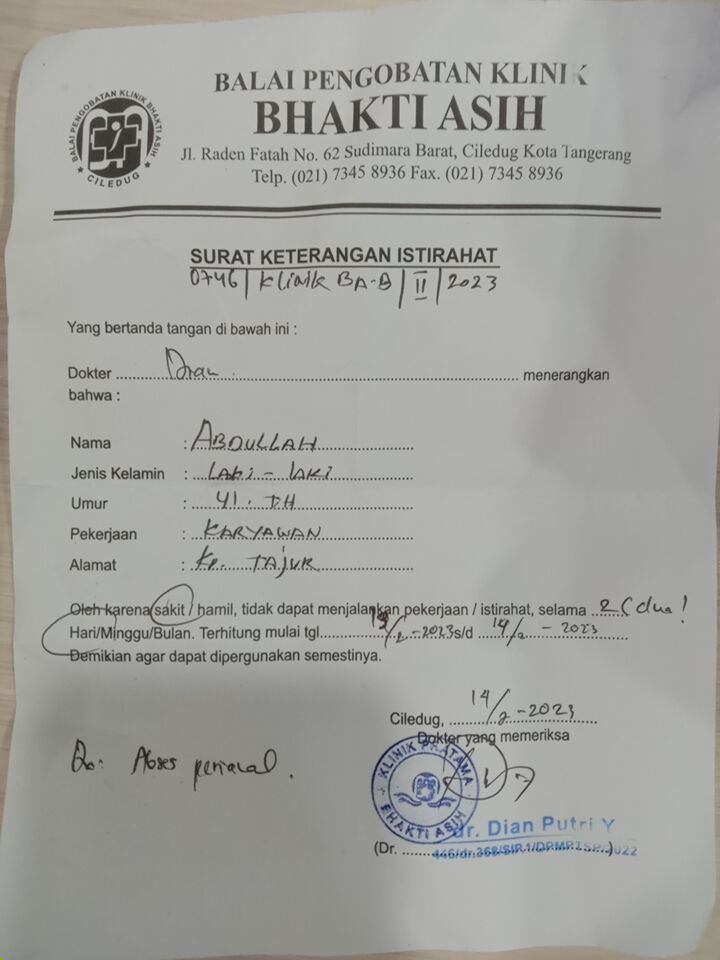 BALAI PENGOBATAN KLINIK
BHAKTI ASIH
BALAI PENGOBATAN KLINIK BHAKTI ASIH
CILEDUG
Jl. Raden Fatah No. 62 Sudimara Barat, Ciledug Kota Tangerang
Telp. (021) 7345 8936 Fax. (021) 7345 8936
SURAT KETERANGAN ISTIRAHAT
0746 / Klinik BA-B / II / 2023
Yang bertanda tangan di bawah ini :
Dokter Dian menerangkan
bahwa :
Nama : ABDULLAH
Jenis Kelamin : LAKI - LAKI
Umur : 41 . TH
Pekerjaan : KARYAWAN
Alamat : Kp. TAJUR
Oleh karena sakit / hamil, tidak dapat menjalankan pekerjaan / istirahat, selama 2 (dua)
Hari/Minggu/Bulan. Terhitung mulai tgl. 13/2 - 2023 s/d 14/2 - 2023
Demikian agar dapat dipergunakan semestinya.
Ciledug, 14/2 - 2023
Dokter yang memeriksa
Abses
KLINIK PRATAMA
BHAKTI ASIH
dr. Dian Putri Y
(Dr. )